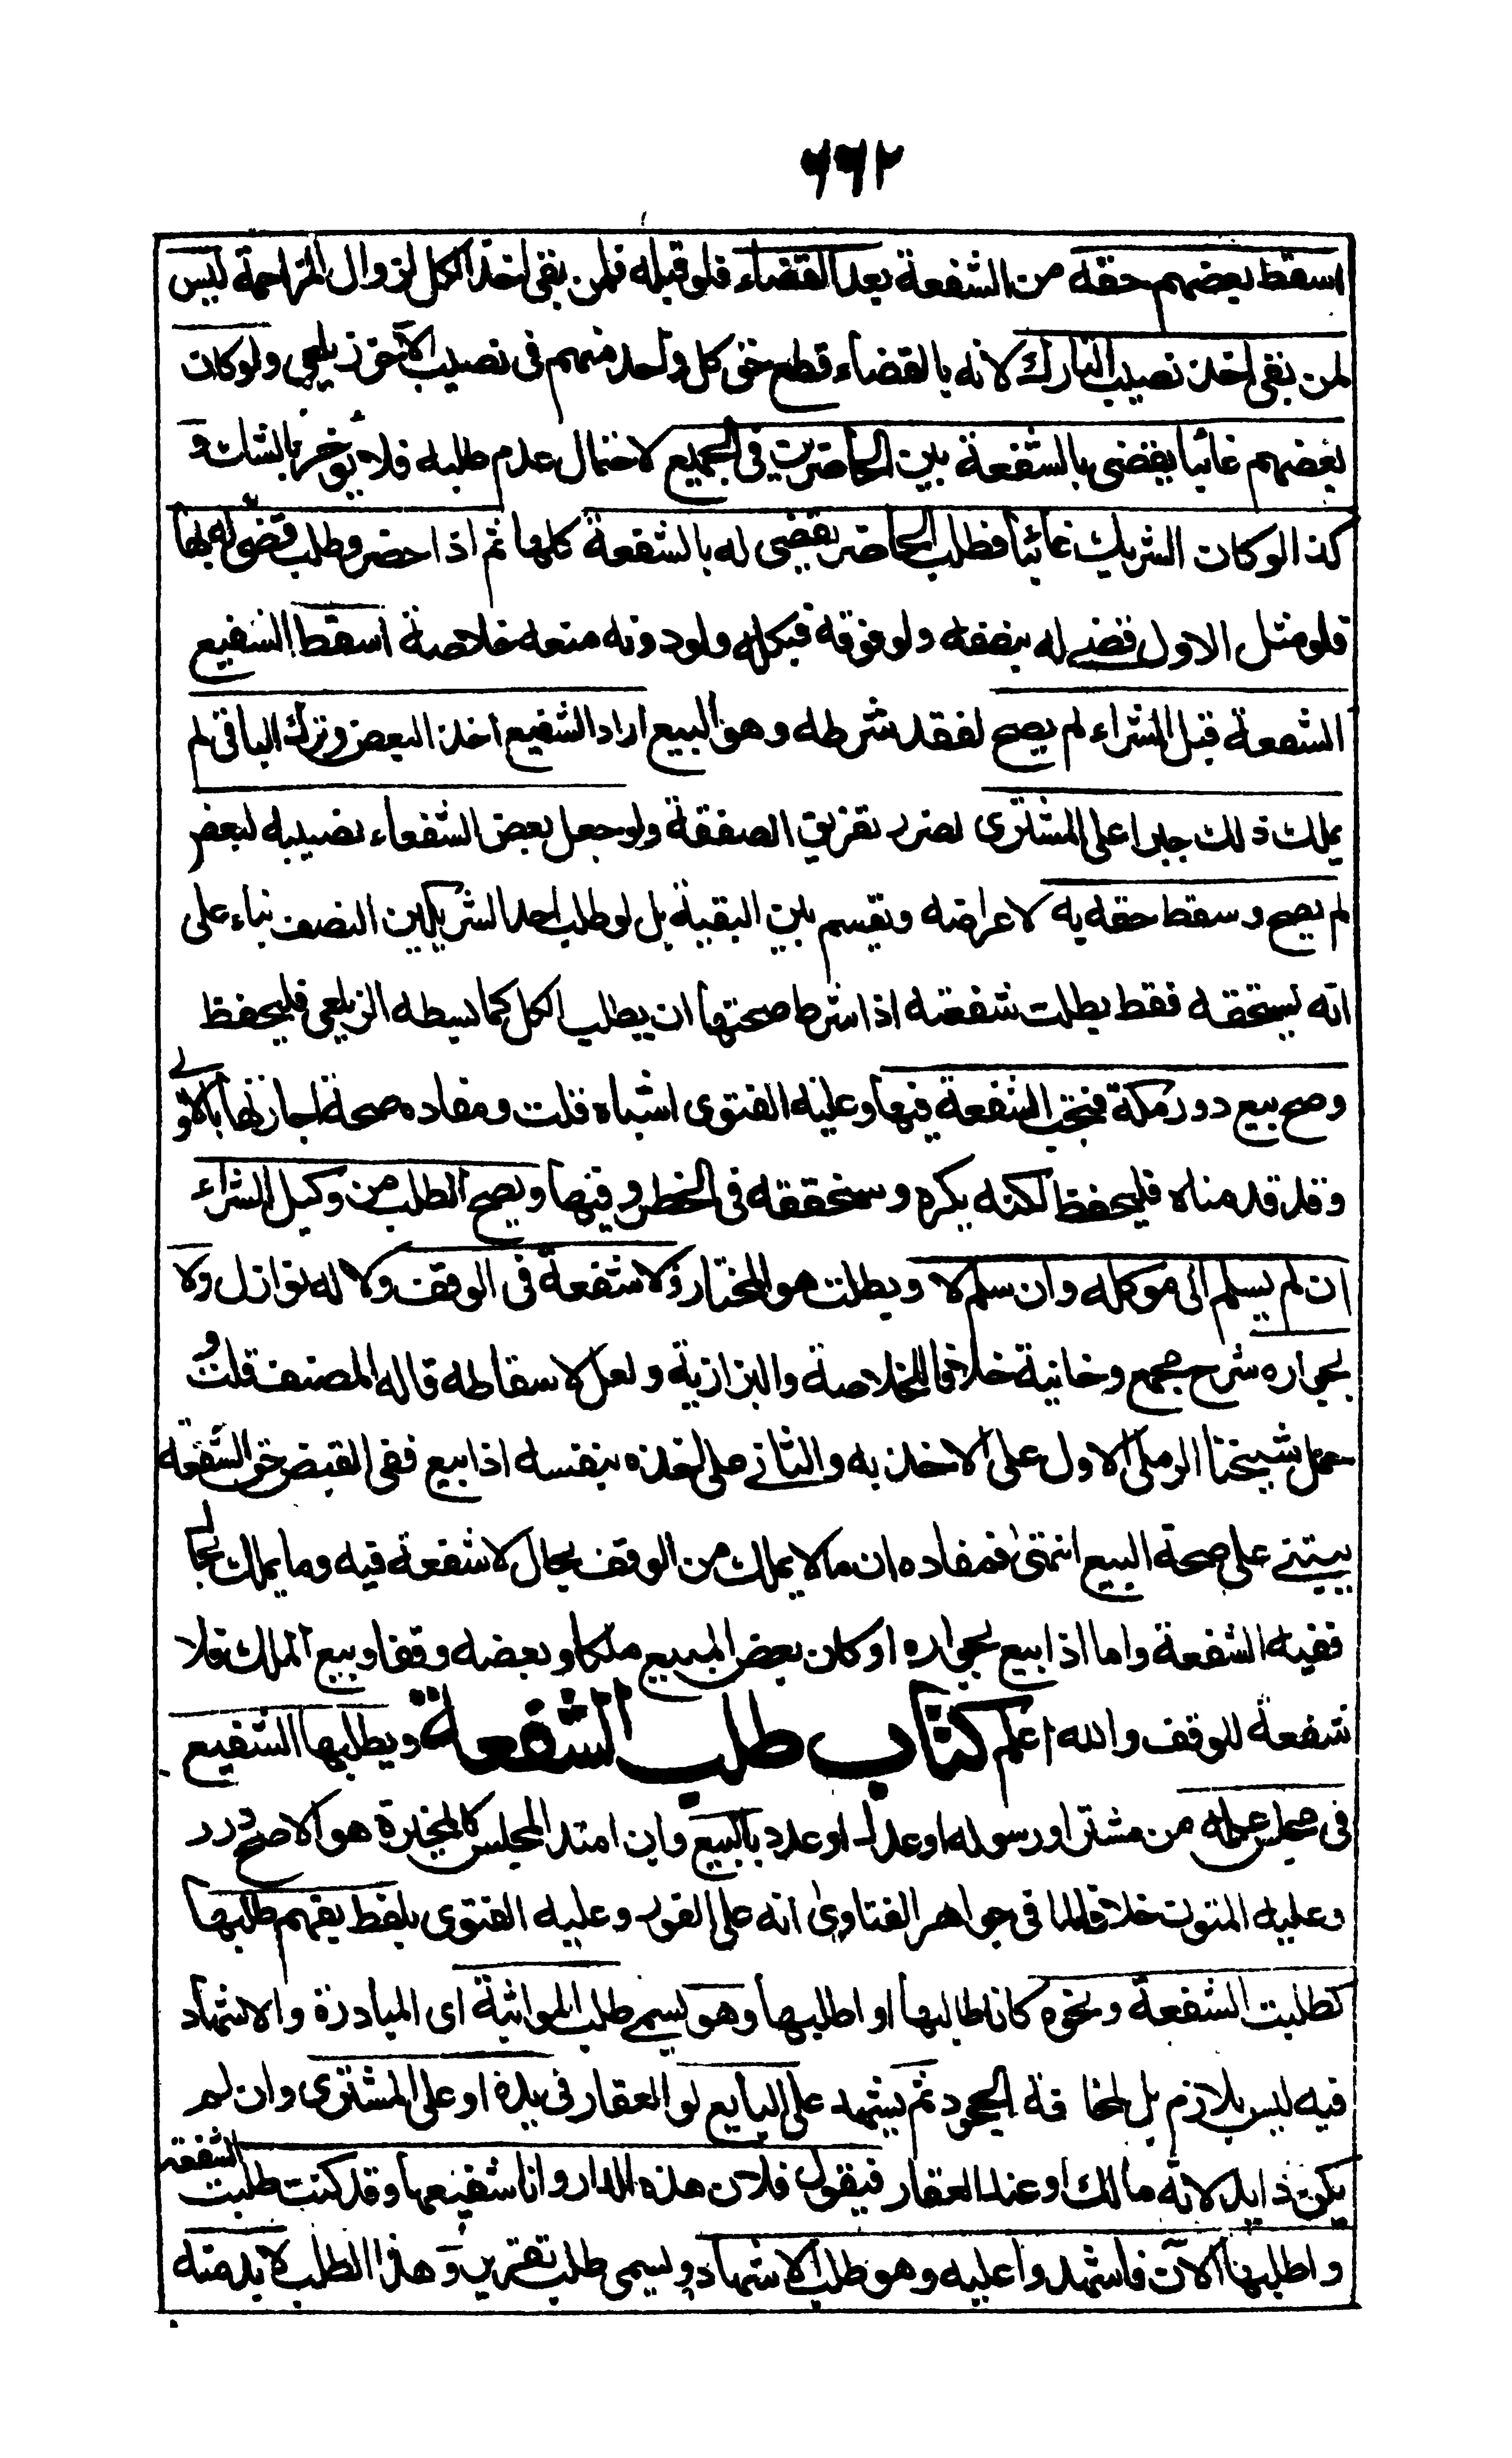 ٦٦٢
اسقط بعضهم حقه من الشفعة بعد القضاء فلو قبله فلمن بقى اخذ الكل لزوال المزاحمة ليس
لمن بقى اخذ نصيب التارك لانه بالقضاء قطع حق كل واحد منهم فى نصيب الآخر زيلعى ولو كان
بعضهم غائبا يقضى بالشفعة بين الحاضرين فى الجميع لاحتمال عدم طلبه فلا يؤخر بالشك و
كذا لو كان الشريك غائبا فطلب الحاضر يقضى له بالشفعة كلها ثم اذا حضر وطلب قضى له بها
فلو مثل الاول قضى له بنصفه ولو فوقه فبكله ولو دونه منعه خلاصة اسقط الشفيع
الشفعة قبل الشراء لم يصح لفقد شرطه وهو البيع اراد الشفيع اخذ البعض وترك الباقى لم
يملك ذلك جبرا على المشترى لضرر تفريق الصفقة ولو جعل بعض الشفعاء نصيبه لبعض
لم يصح وسقط حقه به لاعراضه ونقسم بين البقية بل لو طلب احد الشريكين النصف بناء على
انه يستحقه فقط بطلت شفعته اذ اشرط صحتها ان يطلب الكل كما بسطه الزيلعى فليحفظ
وصح بيع دور مكة فتجب الشفعة فيها وعليه الفتوى اشباه قلت ومفاده صحة اجارتها بالاولى
وقد قدمناه فليحفظ لكنه يكره وسنحققه فى الحظر وفيها ويصح الطلب من وكيل الشراء
ان لم يسلم الى موكله وان سلم لا وبطلت هو المختار ولا شفعة فى الوقف ولا له نوازل ولا
بجواره شرح مجمع وخانية خلافا للخلاصة والبزازية ولعل لا سقاطه قاله المصنف قلت و
حمل شيخنا الرملى الاول على الاخذ به والثانى على اخذه بنفسه اذا بيع ففى الفيض حق الشفعة
يبتنى على صحة البيع انتهى فمفاده ان ما لا يملك من الوقف بحال لا شفعة فيه وما يملك بحال
ففيه الشفعة واما اذا بيع بجواره او كان بعض المبيع ملكا وبعضه وقفا وبيع الملك فلا
شفعة للوقف والله اعلم كتاب طلب الشفعة ويطلبها الشفيع
فى مجلس علمه من مشتر او رسوله او عدل او عدد بالبيع وان امتد المجلس كالمخيرة هو الاصح درر
وعليه المتون خلافا لما فى جواهر الفتاوى انه على الفور وعليه الفتوى بلفظ يفهم طلبها
كطلبت الشفعة ونحوه كانا طالبها او اطلبها وهو يسمى طلب المواثبة اى المبادرة والاشهاد
فيه ليس بلازم بل لمخافة الجحود ثم يشهد على البايع لو العقار فى يده او على المشترى وان لم
يكن ذا يد لانه مالك او عند العقار فيقول فلان هذه الدار وانا شفيعها وقد كنت طلبت الشفعة
واطلبها الآن فاشهدوا عليه وهو طلب الاشهاد ويسمى طلب تقرير وهذا الطلب لا بد منه